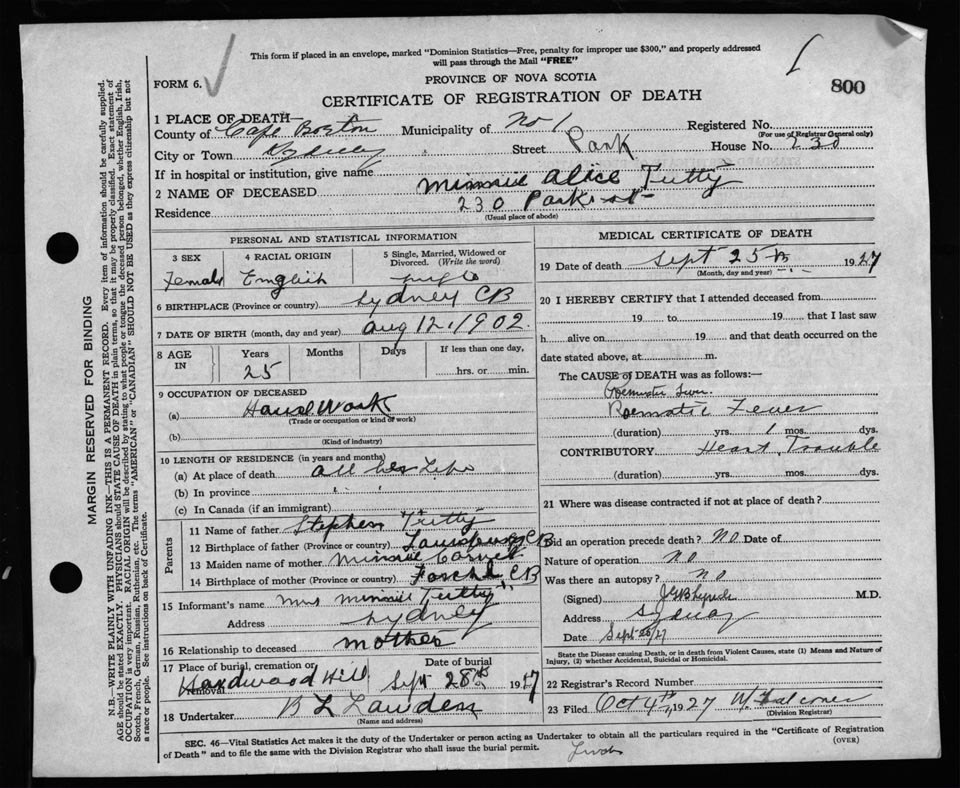 This form if placed in an envelope, marked "Dominion Statistics—Free, penalty for improper use $300," and properly addressed
will pass through the Mail "FREE"
FORM 6.
PROVINCE OF NOVA SCOTIA
800
CERTIFICATE OF REGISTRATION OF DEATH
1 PLACE OF DEATH—
County of Cape Breton Municipality of No 1 Registered No.
(For use of Registrar General only)
City or Town Sydney Street Park House No. 230
If in hospital or institution, give name
2 NAME OF DECEASED Minnie Alice Tutty
Residence 230 Park st
(Usual place of abode)
PERSONAL AND STATISTICAL INFORMATION
3 SEX 4 RACIAL ORIGIN 5 Single, Married, Widowed or
Divorced. (Write the word)
Female English single
6 BIRTHPLACE (Province or country) Sydney CB
7 DATE OF BIRTH (month, day and year) Aug 12, 1902
8 AGE IN Years Months Days If less than one day,
25 hrs. or min.
9 OCCUPATION OF DECEASED
(a) House Work
(Trade or occupation or kind of work)
(b)
(Kind of industry)
10 LENGTH OF RESIDENCE (in years and months)
(a) At place of death all her Life
(b) In province " "
(c) In Canada (if an immigrant)
Parents
11 Name of father Stephen Tutty
12 Birthplace of father (Province or country) CB
13 Maiden name of mother Minnie
14 Birthplace of mother (Province or country) CB
15 Informant's name Mrs Minnie Tutty
Address Sydney
16 Relationship to deceased mother
17 Place of burial, cremation or removal Date of burial
Hardwood Hill Sept 28th 1927
18 Undertaker B L
(Name and address)
MEDICAL CERTIFICATE OF DEATH
19 Date of death Sept 25th 1927
(Month, day and year)
20 I HEREBY CERTIFY that I attended deceased from
19 to 19 that I last saw
h alive on 19 and that death occurred on the
date stated above, at m.
The CAUSE OF DEATH was as follows:—
Roematic Fever
(duration) yrs. 1 mos. dys.
CONTRIBUTORY Heart Trouble
(duration) yrs. mos. dys.
21 Where was disease contracted if not at place of death?
Did an operation precede death? No Date of
Nature of operation No
Was there an autopsy? no
(Signed) Lynch M.D.
Address Sydney
Date Sept 28/27
State the Disease causing Death, or in death from Violent Causes, state (1) Means and Nature of
Injury, (2) whether Accidental, Suicidal or Homicidal.
22 Registrar's Record Number
23 Filed Oct 4th 1927
(Division Registrar)
SEC. 46—Vital Statistics Act makes it the duty of the Undertaker or person acting as Undertaker to obtain all the particulars required in the "Certificate of Registration
of Death" and to file the same with the Division Registrar who shall issue the burial permit.
(OVER)
MARGIN RESERVED FOR BINDING
N.B.—WRITE PLAINLY WITH UNFADING INK—THIS IS A PERMANENT RECORD. Every item of information should be carefully supplied.
AGE should be stated EXACTLY. PHYSICIANS should STATE CAUSE OF DEATH in plain terms, so that it may be properly classified. Exact statement of
OCCUPATION is very important. RACIAL ORIGIN will be described by stating to what people or tongue the deceased person belonged, whether English, Irish,
Scotch, French, German, Russian, Ruthenian, etc. The terms "AMERICAN" or "CANADIAN" SHOULD NOT BE USED as they express citizenship but not
a race or people. See instructions on back of Certificate.